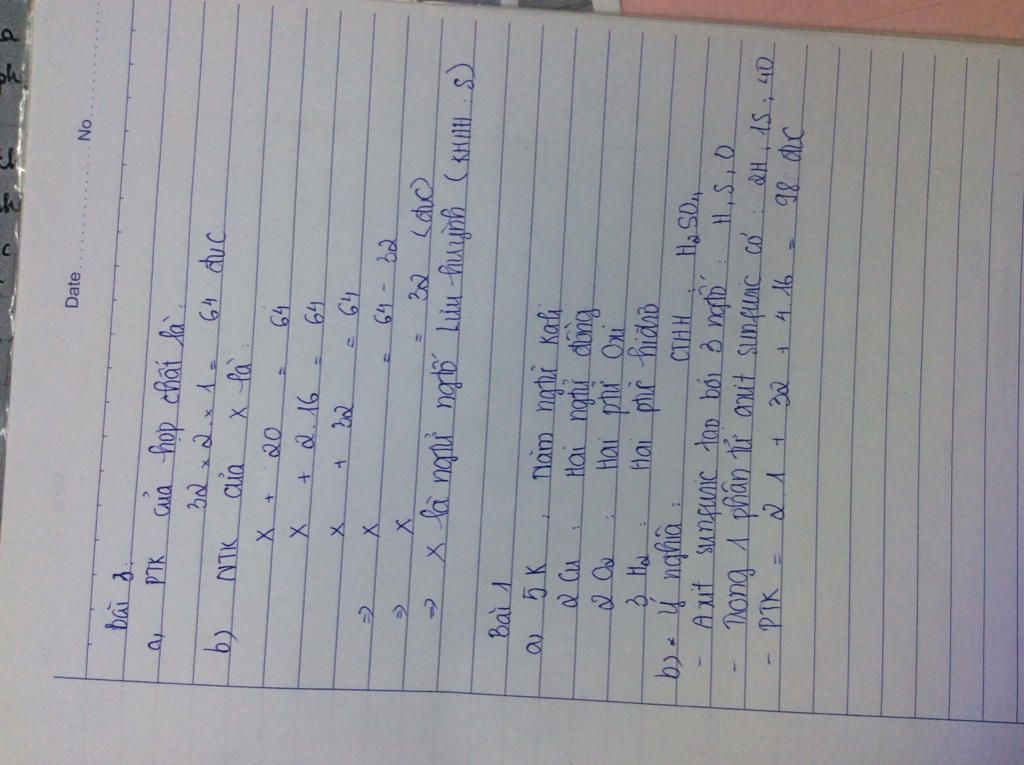 Date............ No............
Bài 3.
a, PTK của hợp chất là:
32 x 2 x 1 = 64 đvC
b) NTK của x là:
X + 2O = 64
X + 2.16 = 64
X + 32 = 64
=> X = 64 - 32
=> X = 32 (đvC)
=> X là nguyên tử ngtố Lưu huỳnh (KHHH: S)
Bài 1
a, 5K: Năm ngtử Kali
2 Cu: Hai ngtử đồng
2 O2: Hai ptử Oxi
3 H2: Hai ptử hiđro
b) * Ý nghĩa: CTHH: H2SO4
- Axit sunfuric tạo bởi 3 ngtố: H, S, O
- Trong 1 phân tử axit sunfuric có: 2H, 1S, 4O
- PTK = 2.1 + 32 + 4.16 = 98 đvC